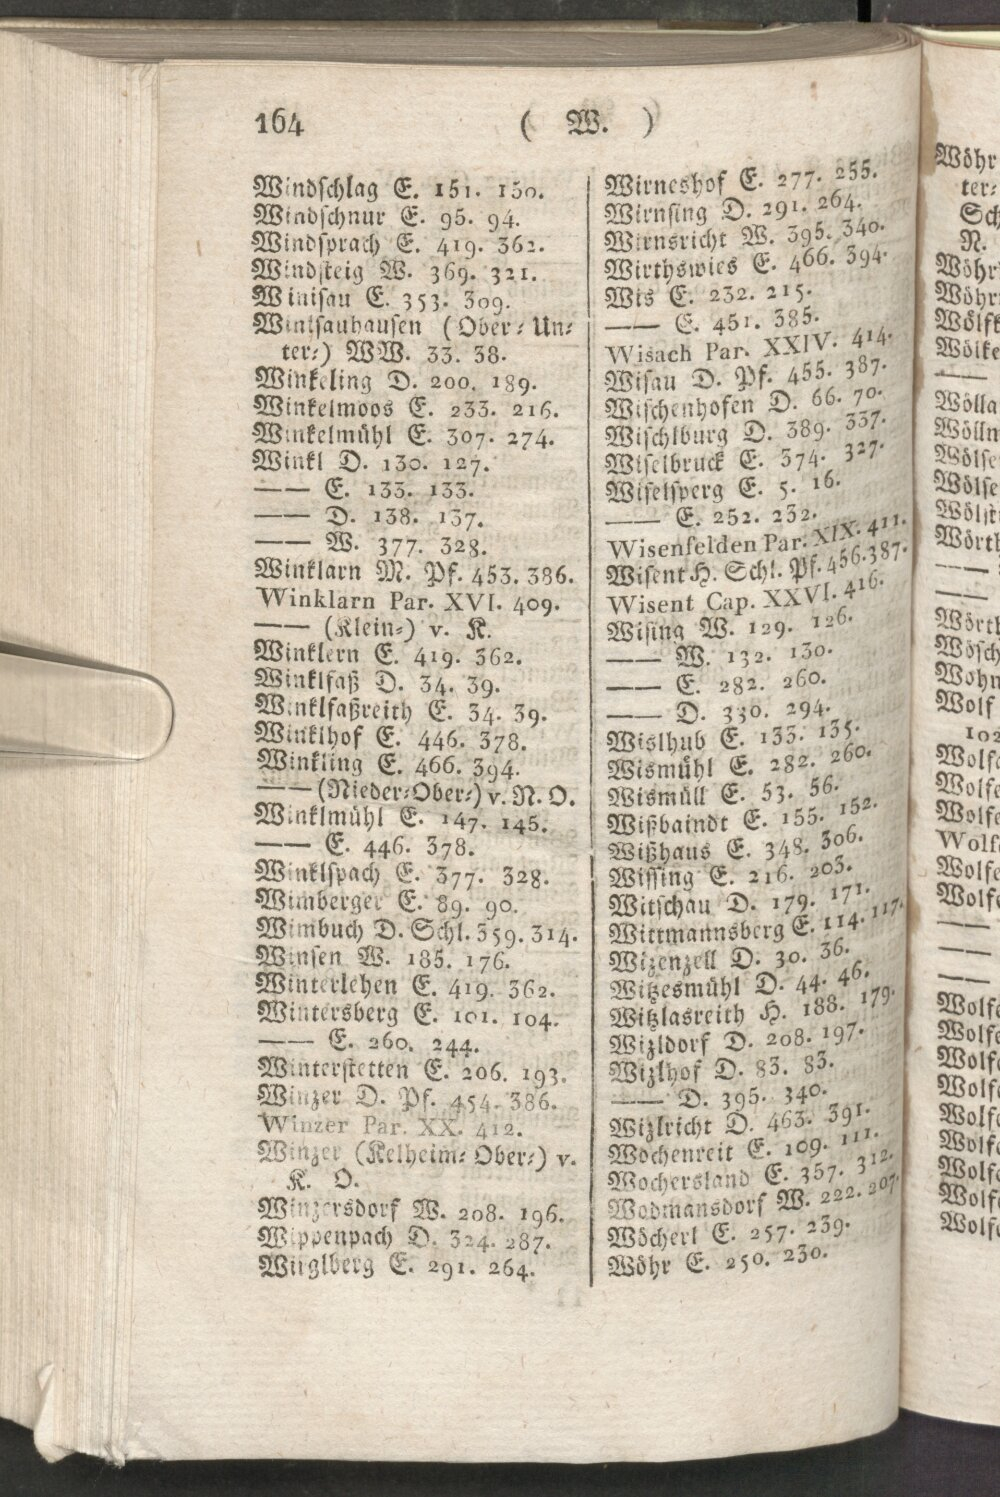 164 ( W. )
Windschlag E. 151. 150.
Windschnur E. 95. 94.
Windsprach E. 419. 362.
Windsteig W. 369. 321.
Winisau E. 353. 309.
Winisauhausen (Ober⸗ Un⸗
ter⸗) WW. 33. 38.
Winkeling D. 200. 189.
Winkelmoos E. 233. 216.
Winkelmühl E. 307. 274.
Winkl D. 130. 127.
—— E. 133. 133.
—— D. 138. 137.
—— W. 377. 328.
Winklarn M. Pf. 453. 386.
Winklarn Par. XVI. 409.
—— (Klein⸗) v. K.
Winklern E. 419. 362.
Winklsaß D. 34. 39.
Winklsaßreith E. 34. 39.
Winklhof E. 446. 378.
Winkling E. 466. 394.
—— (Nieder⸗Ober⸗) v. N. O.
Winklmühl E. 147. 145.
—— E. 446. 378.
Winklspach E. 377. 328.
Wimberger E. 89. 90.
Wimbuch D. Schl. 359. 314.
Winsen W. 185. 176.
Winterlehen E. 419. 362.
Wintersberg E. 101. 104.
—— E. 260. 244.
Winterstetten E. 206. 193.
Winzer D. Pf. 454. 386.
Winzer Par. XX. 412.
Winzer (Kelheim⸗ Ober⸗) v.
K. O.
Winzersdorf W. 208. 196.
Wippenpach D. 324. 287.
Wirglberg E. 291. 264.
Wirneshof E. 277. 255.
Wirnsing D. 291. 264.
Wirnsricht W. 395. 340.
Wirthswies E. 466. 394.
Wis E. 232. 215.
—— E. 451. 385.
Wisach Par. XXIV. 414.
Wisau D. Pf. 455. 387.
Wischenhofen D. 66. 70.
Wischlburg D. 389. 337.
Wiselbruck E. 374. 327.
Wiselsperg E. 5. 16.
—— E. 252. 232.
Wisenfelden Par. XIX. 411.
Wisent H. Schl. Pf. 456. 387.
Wisent Cap. XXVI. 416.
Wising W. 129. 126.
—— W. 132. 130.
—— E. 282. 260.
—— D. 330. 294.
Wislhub E. 133. 135.
Wismühl E. 282. 260.
Wismüll E. 53. 56.
Wißbaindt E. 155. 152.
Wißhaus E. 348. 306.
Wissing E. 216. 203.
Witschau D. 179. 171.
Wittmannsberg E. 114. 117.
Wizenzell D. 30. 36.
Witzesmühl D. 44. 46.
Witzlasreith H. 188. 179.
Wizldorf D. 208. 197.
Wizlhof D. 83. 83.
—— D. 395. 340.
Wizlricht D. 463. 391.
Wochenreit E. 109. 111.
Wochersland E. 357. 312.
Wodmansdorf W. 222. 207.
Wöcherl E. 257. 239.
Wöhr E. 250. 230.
Wöhr
ter⸗
Sch
N.